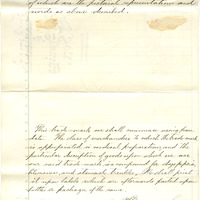 of which are the pictorial representations and
words as above described.
This trade-mark we shall commence using from
date. The class of merchandise to which the trade-mark
is appropriated is medical preparations, and the
particular description of goods upon which we use
our said trade-mark is compound for dyspepsia,
liver and stomach troubles. We shall print
it upon labels which are afterwards pasted upon
bottles or packages of the same.